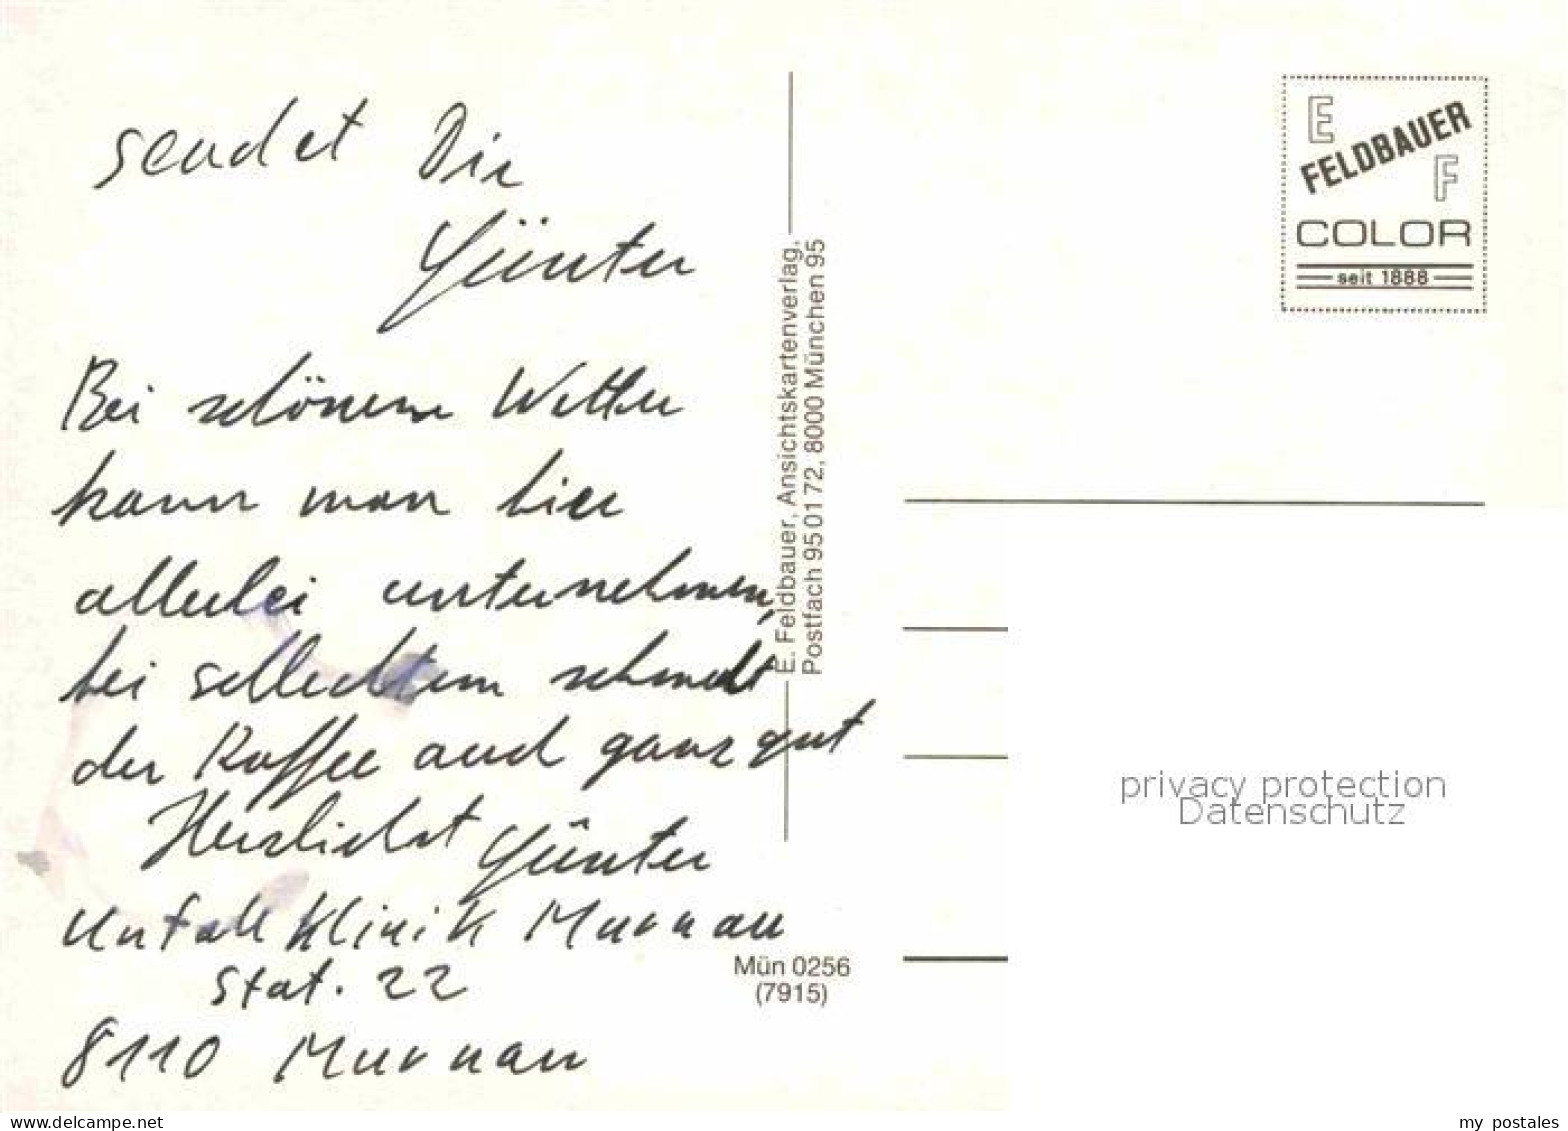 sendet Dir
Günter
Bei schönem Wetter
kann man hier
allerlei unternehmen,
bei schlechtem schmeckt
der Kaffee auch ganz gut
Herzlichst Günter
Unfallklinik Murnau
Stat. 22
8110 Murnau
E. Feldbauer, Ansichtskartenverlag,
Postfach 95 01 72, 8000 München 95
Mün 0256
(7915)
E
FELDBAUER
F
COLOR
seit 1888
privacy protection
Datenschutz
delcampe.net
my_postales